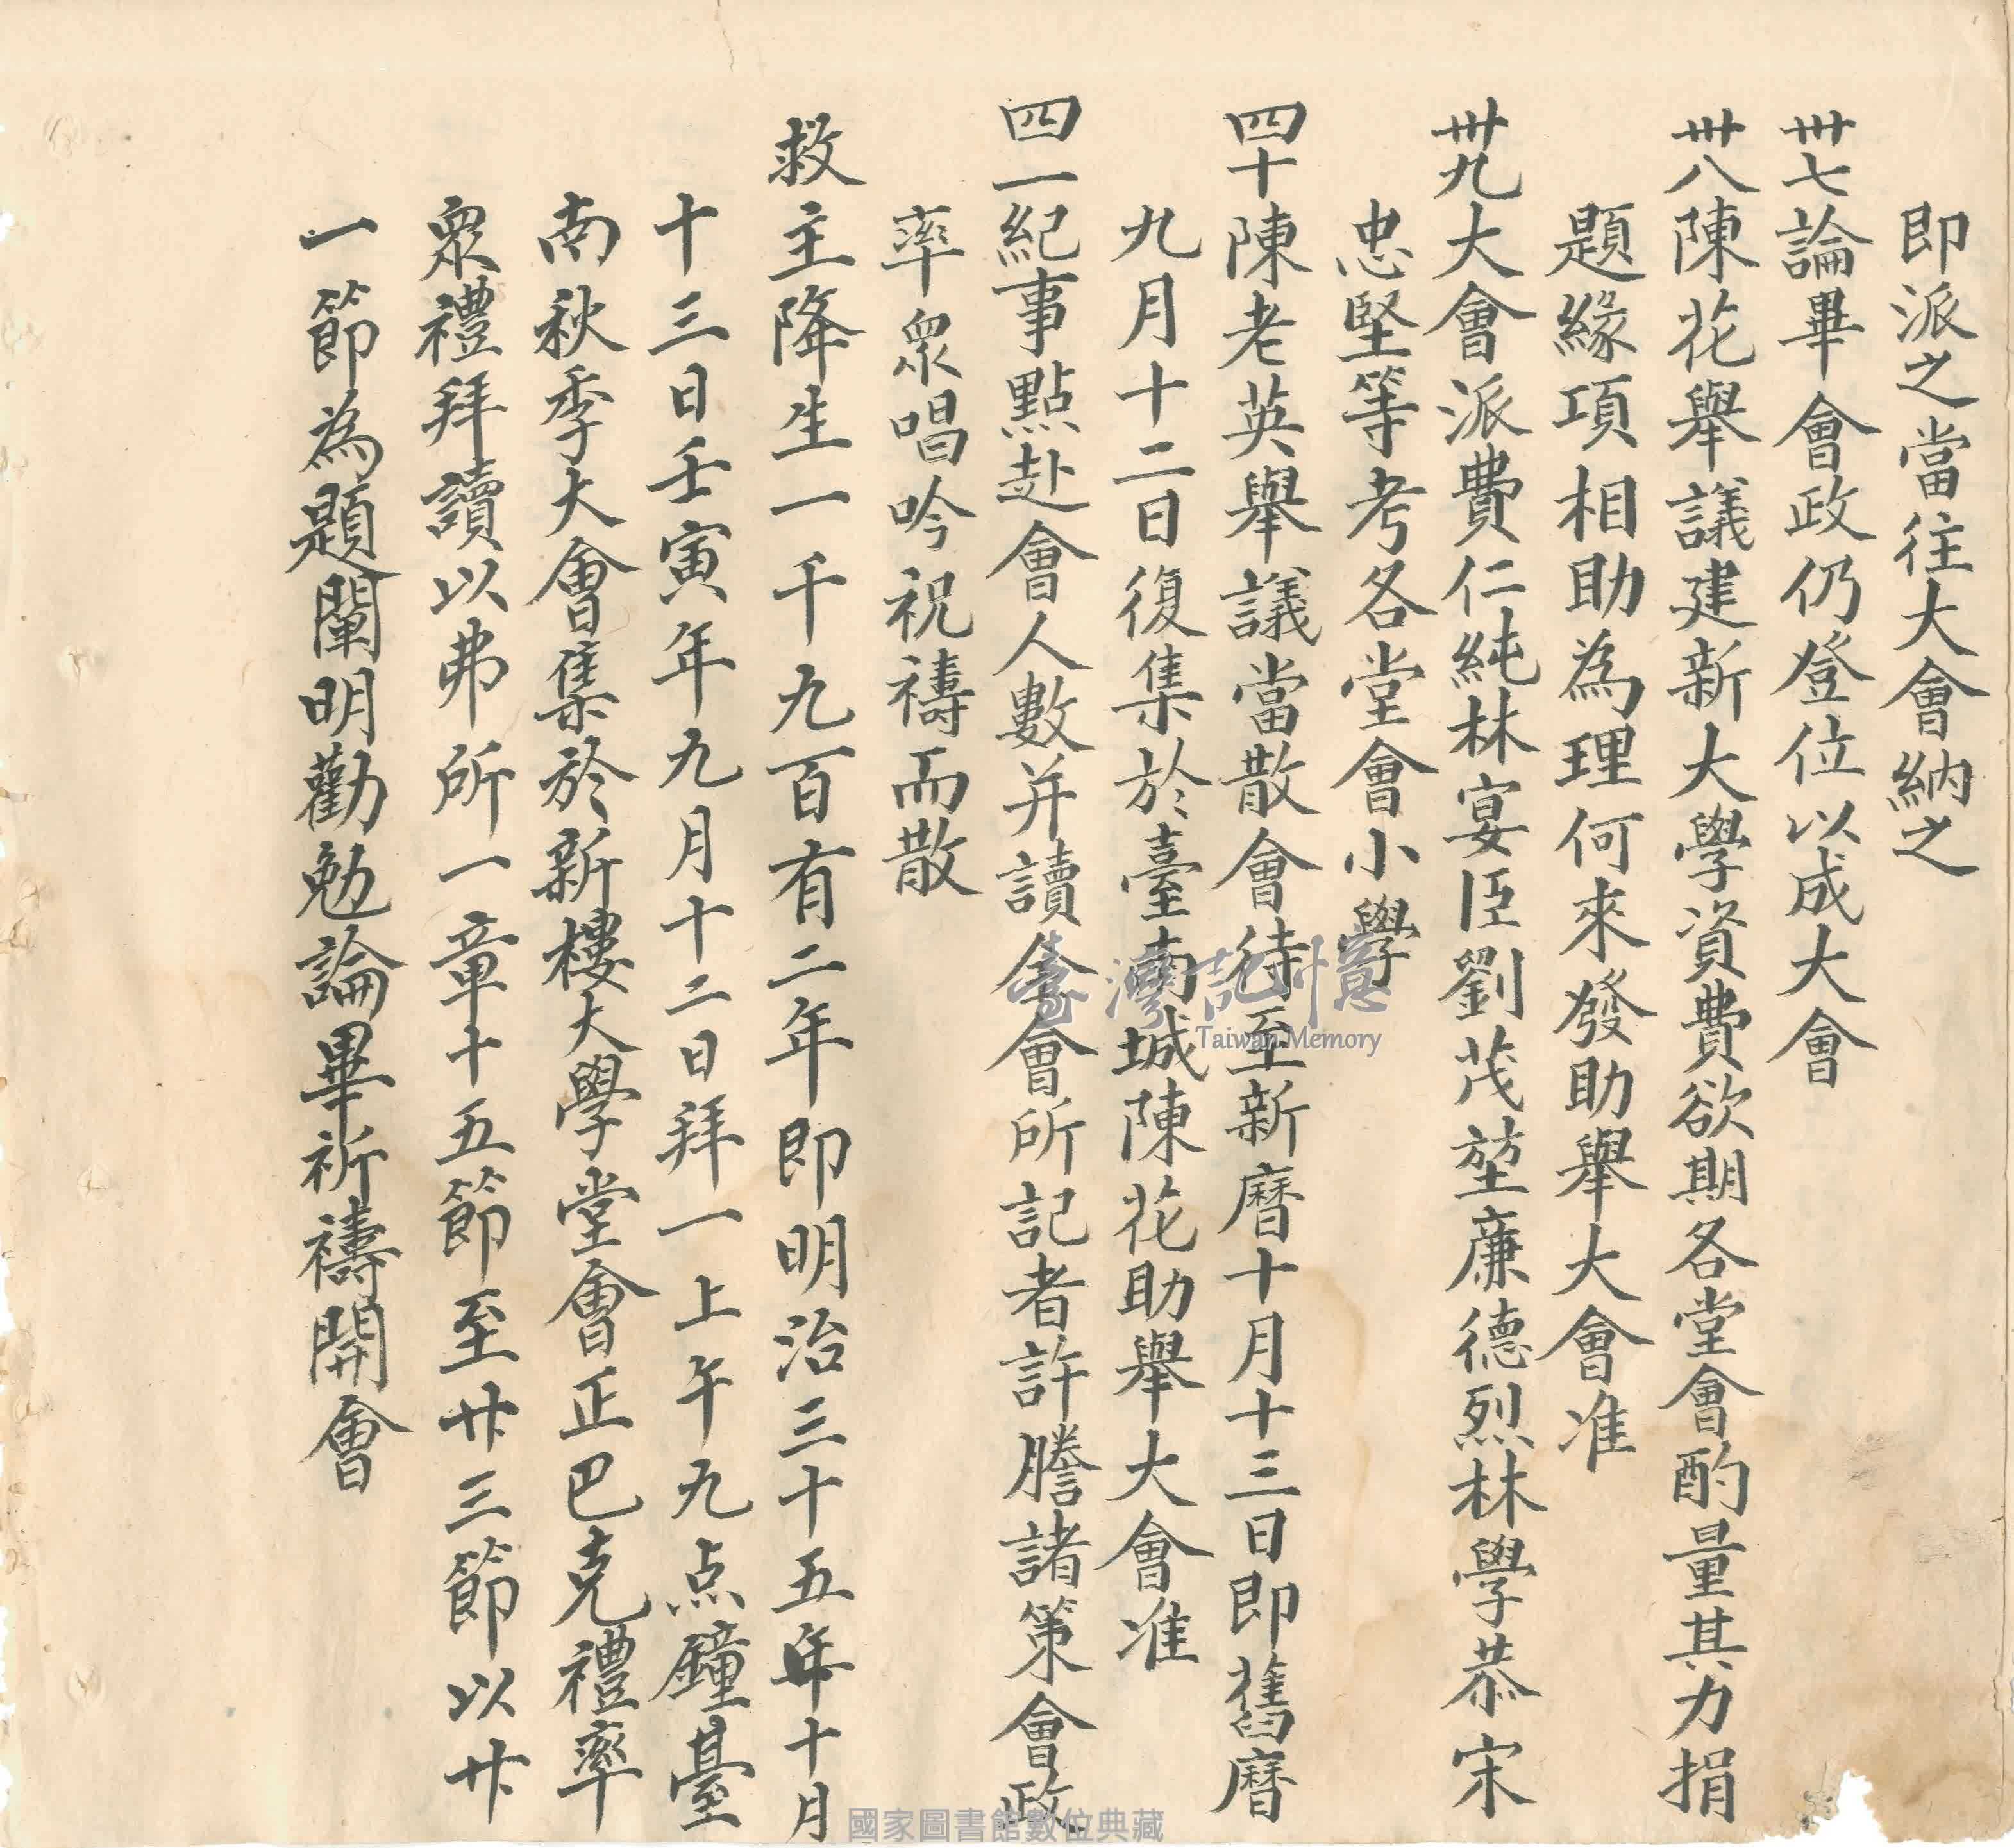 即派之當往大會納之
卅七論畢會政仍登位以成大會
卅八陳花舉議建新大學資費欲期各堂會酌量其力捐
題緣項相助為理何來發助舉大會准
卅九大會派費仁純林宴臣劉茂堃廉德烈林學恭宋
忠堅等考各堂會小學
四十陳老英舉議當散會待至新曆十月十三日即舊曆
九月十二日復集於臺南城陳花助舉大會准
四一紀事點赴會人數并讀今會所記者許謄諸策會政
率衆唱吟祝禱而散
救主降生一千九百有二年即明治三十五年十月
十三日壬寅年九月十二日拜一上午九点鐘臺
南秋季大會集於新樓大學堂會正巴克禮率
衆禮拜讀以弗所一章十五節至廿三節以廿
一節為題闡明勸勉論畢祈禱開會
臺灣記憶
Taiwan Memory
國家圖書館數位典藏